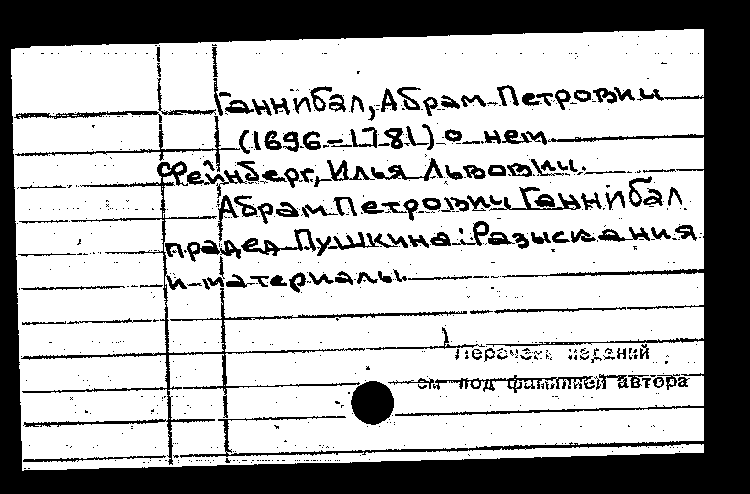 Ганнибал, Абрам Петрович
(1696-1781) о нем
Фейнберг, Илья Львович.
Абрам Петрович Ганнибал
прадед Пушкина: Разыскания
и материалы.
Перечень изданий
см под фамилией автора